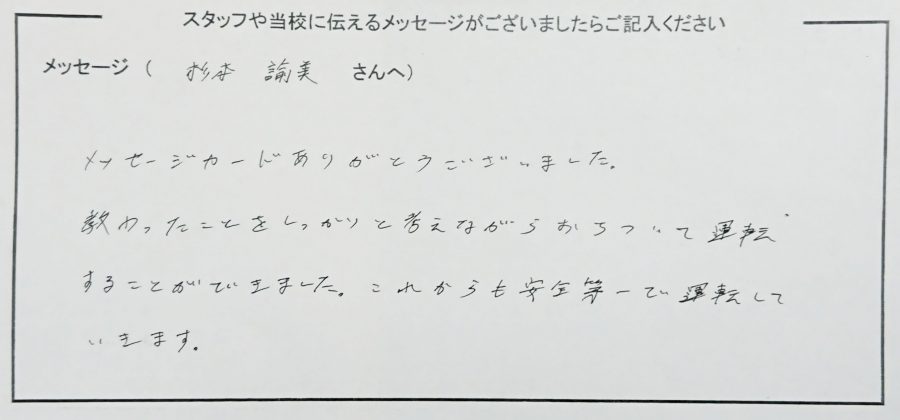 スタッフや当校に伝えるメッセージがございましたらご記入ください
メッセージ ( 杉本 諭美 さんへ)
メッセージカードありがとうございました。
教わったことをしっかりと考えながらおちついて運転
することができました。これからも安全第一で運転して
いきます。